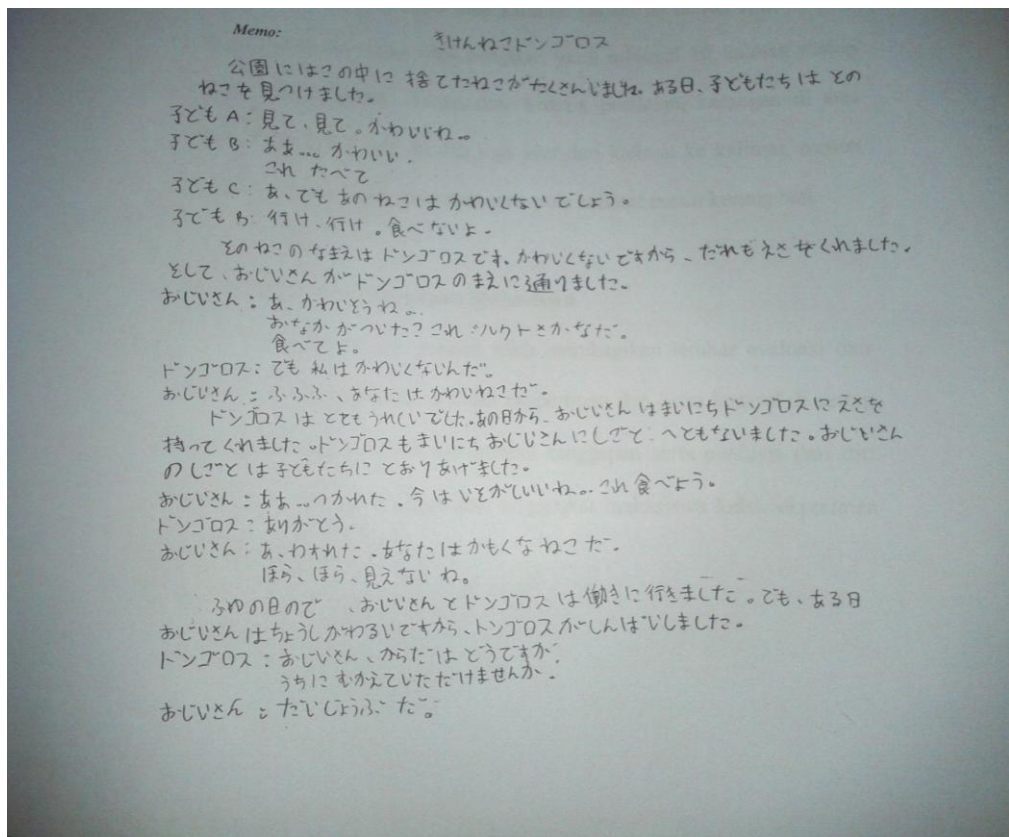 Memo:
きけんねこドンゴロス
公園にはこの中に捨てたねこがたくさんいましたね。ある日、子どもたちはとの
ねこを見つけました。
子どもA：見て、見て。かわいいね。。
子どもB：ああ... かわいい.
これ たべて
子どもC：あ、でもあのねこはかわいくないでしょう。
子どもB：行け、行け。食べないよ.
そのねこのなまえはドンゴロスです.かわいくないですから、だれもえさをくれました.
そして、おじいさんがドンゴロスのまえに通りました。
おじいさん：あ、かわいそうね。.
おなかがついた？これ ソルクトさかなだ。
食べてよ.
ドンゴロス：でも私はかわいくないんだ。
おじいさん：ふふふ、あなたはかわいねこだ.
ドンゴロスはとてもうれしいでした.あの日から、おじいさんはまいにちドンゴロスにえさを
持ってくれました.ドンゴロスもまいにちおじいさんにしごとへともないました。おじいさん
のしごとは子どもたちにとおりあげました.
おじいさん：ああ...つかれた.今はいそがしいいね。..これ食べよう。
ドンゴロス：ありがとう.
おじいさん：あ、わすれた.あなたはかもくなねこだ.
ほら、ほら、見えないね。
ふゆの日ので、おじいさんとドンゴロスは働きに行きました。でも、ある日
おじいさんはちょうしがわるいですから、トンゴロスがしんぱいしました.
ドンゴロス：おじいさん、からだはどうですか.
うちにむかえていただけませんか.
おじいさん：だいじょうぶだ。